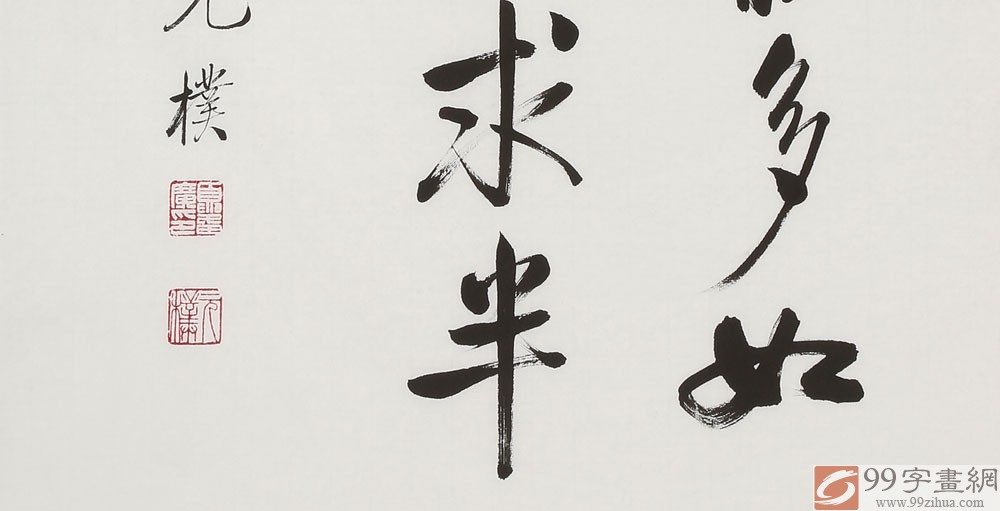 多如
求半
樸
元樸
99字畫網
www.99zihua.com